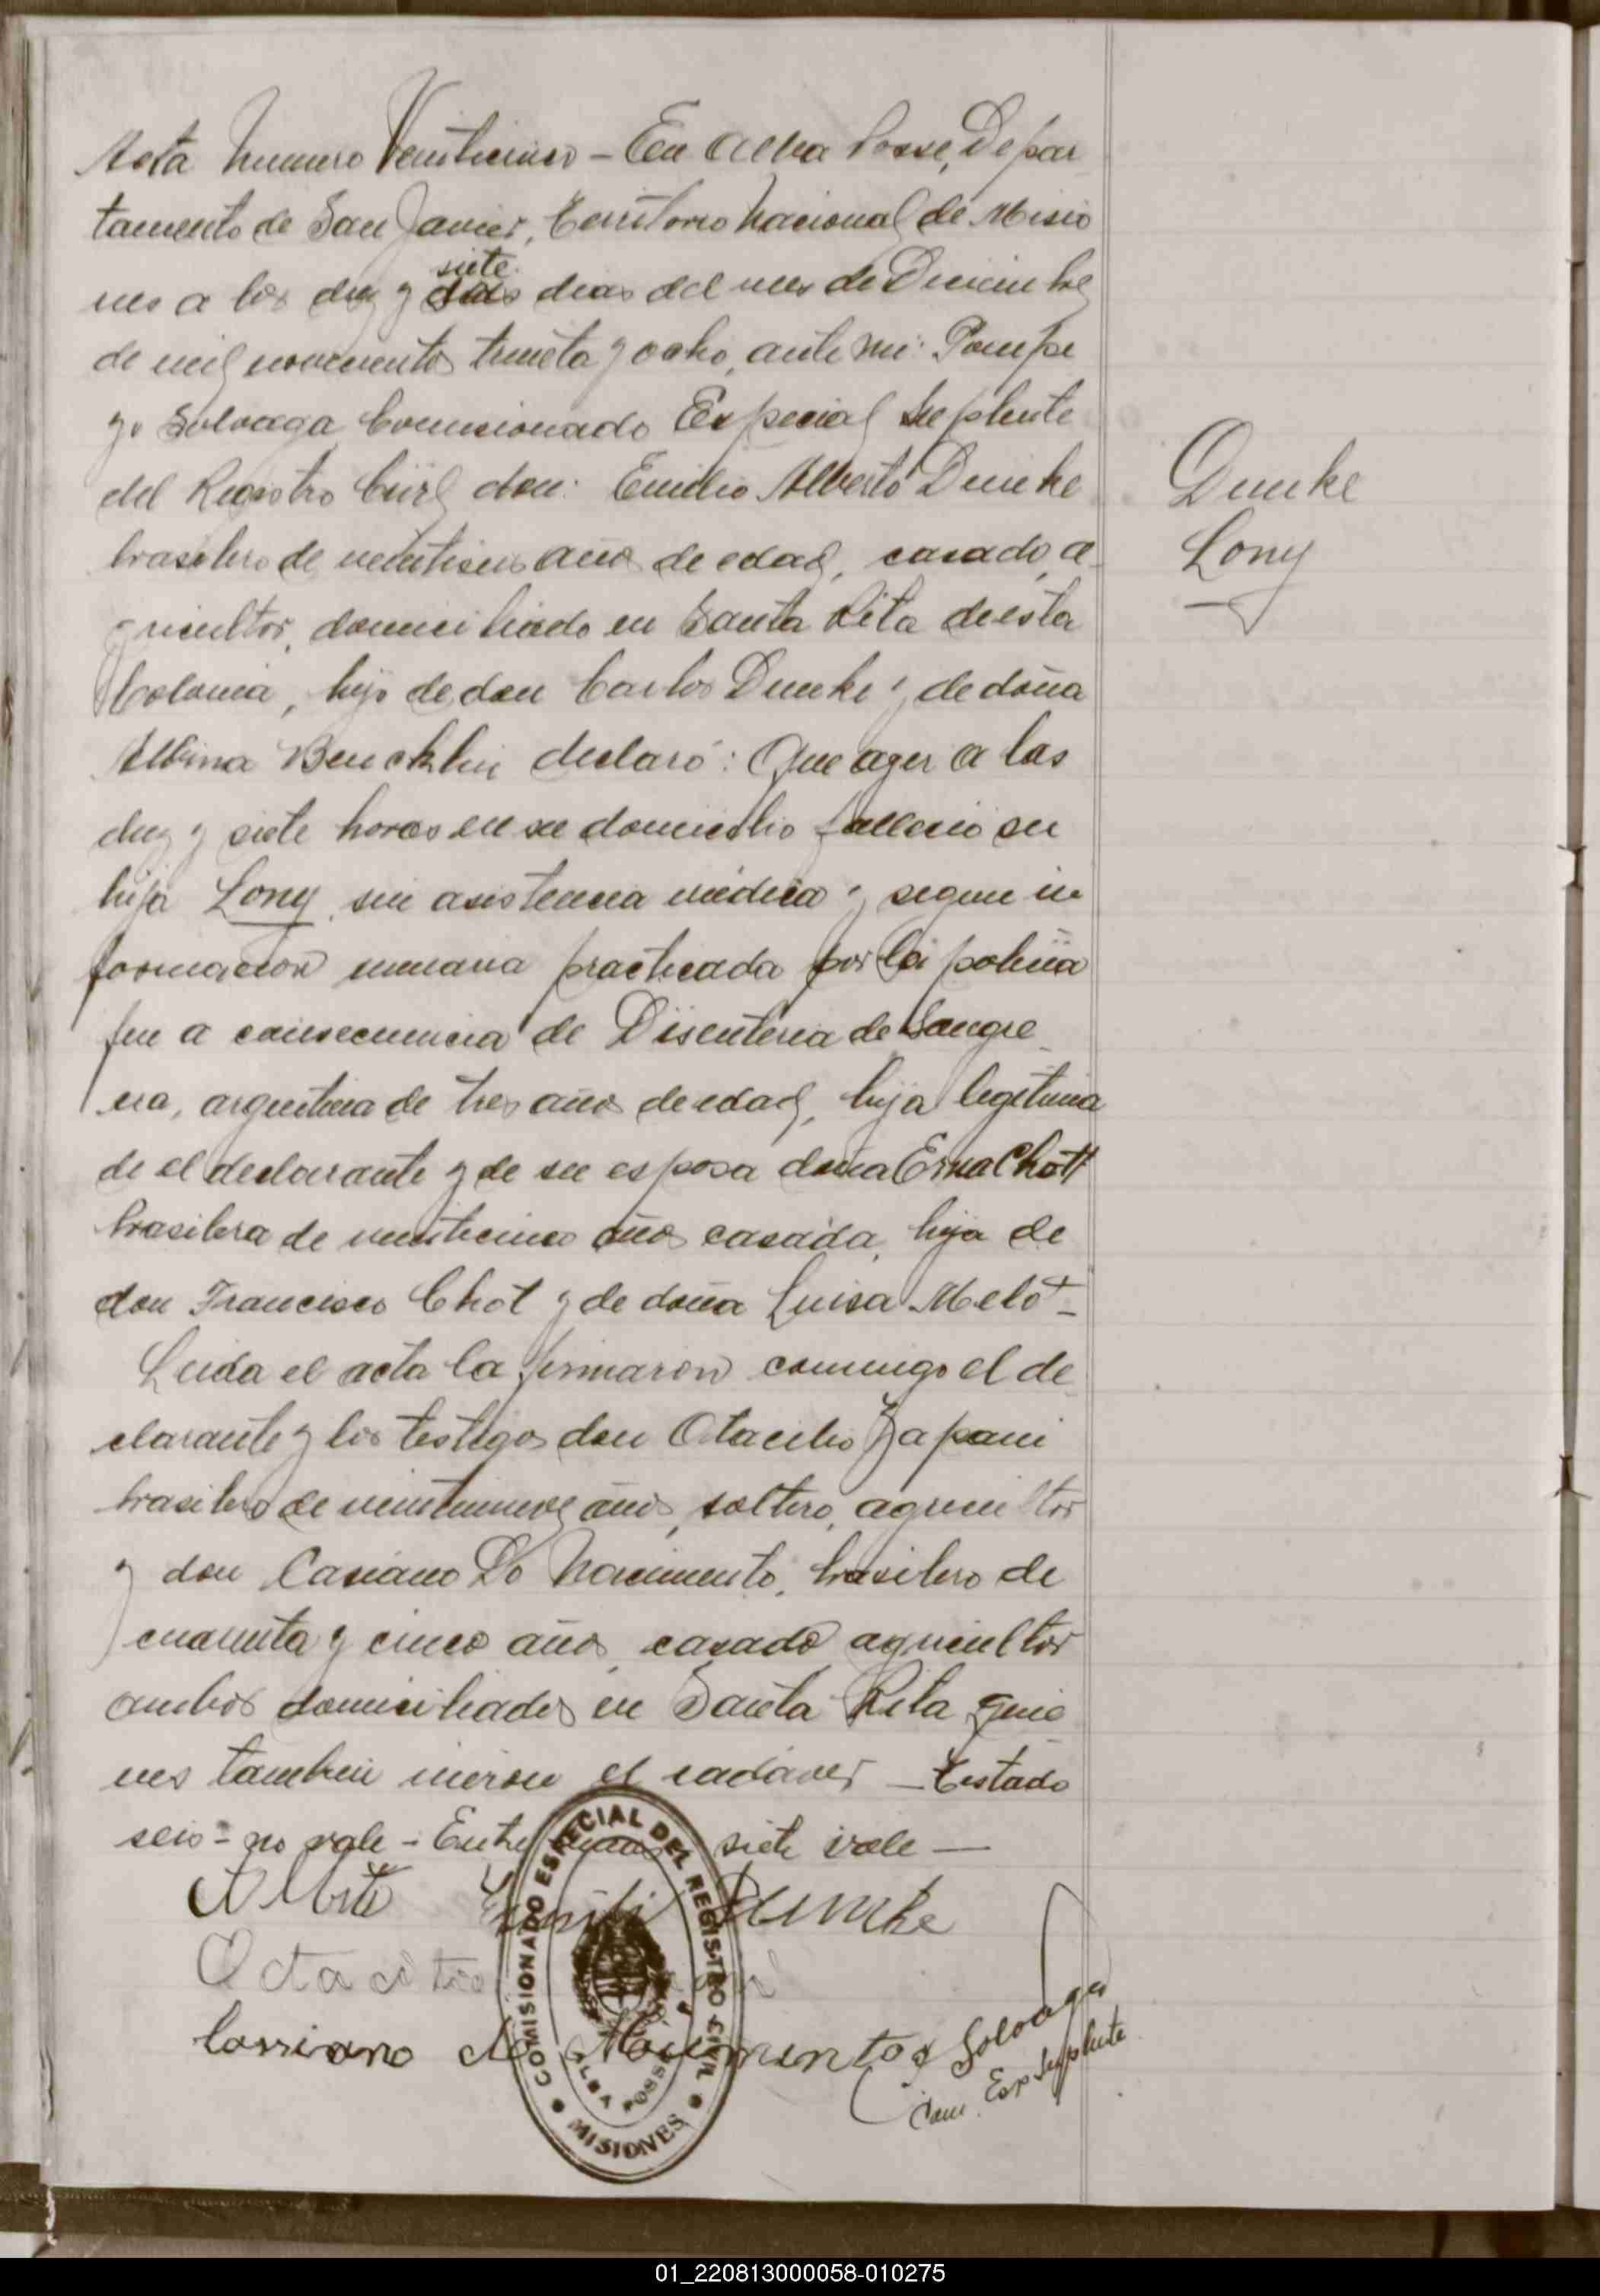 Acta Numero Veinticinco – En Alba Posse, Depar
tamento de San Javier, Territorio Nacional de Misio
nes a los diez y seis siete dias del mes de Diciembre
de mil novecientos treinta y ocho, ante mi: Pompe
yo Soloaga Comisionado Especial Suplente
del Registro Civil don: Emilio Alberto Dumke
brasilero de veintiseis años de edad, casado, a-
gricultor, domiciliado en Santa Rita de esta
Colonia, hijo de don Carlos Dumke y de doña
Albina declaró: Que ayer a las
diez y siete horas en su domicilio fallecio su
hija Lony, sin asistencia médica y segun in
formacion sumaria practicada por la policia
fue a consecuencia de Disenteria de Sangre
era, argentina de tres años de edad, hija legitima
de el declarante y de su esposa doña Erna Chott
brasilera de veinticinco años casada, hija de
don Francisco Chot y de doña Luisa Melo –
Leida el acta la firmaron conmigo el de
clarante y los testigos don Otacilio Zapani
brasilero de veintinueve años, soltero, agricultor
y don Casiano Do Nacimento, brasilero de
cuarenta y cinco años, casado agricultor
ambos domiciliados en Santa Rita quie
nes tambien vieron el cadáver – Testado
seis – no vale – Entre lineas siete vale —
Alberto Emilio Dumke
Octacilio
Cassiano do Nacimento
Soloaga
Com. Esp Suplente
Dumke
Lony
COMISIONADO ESPECIAL DEL REGISTRO CIVIL
ALBA POSSE
MISIONES
01_220813000058-010275